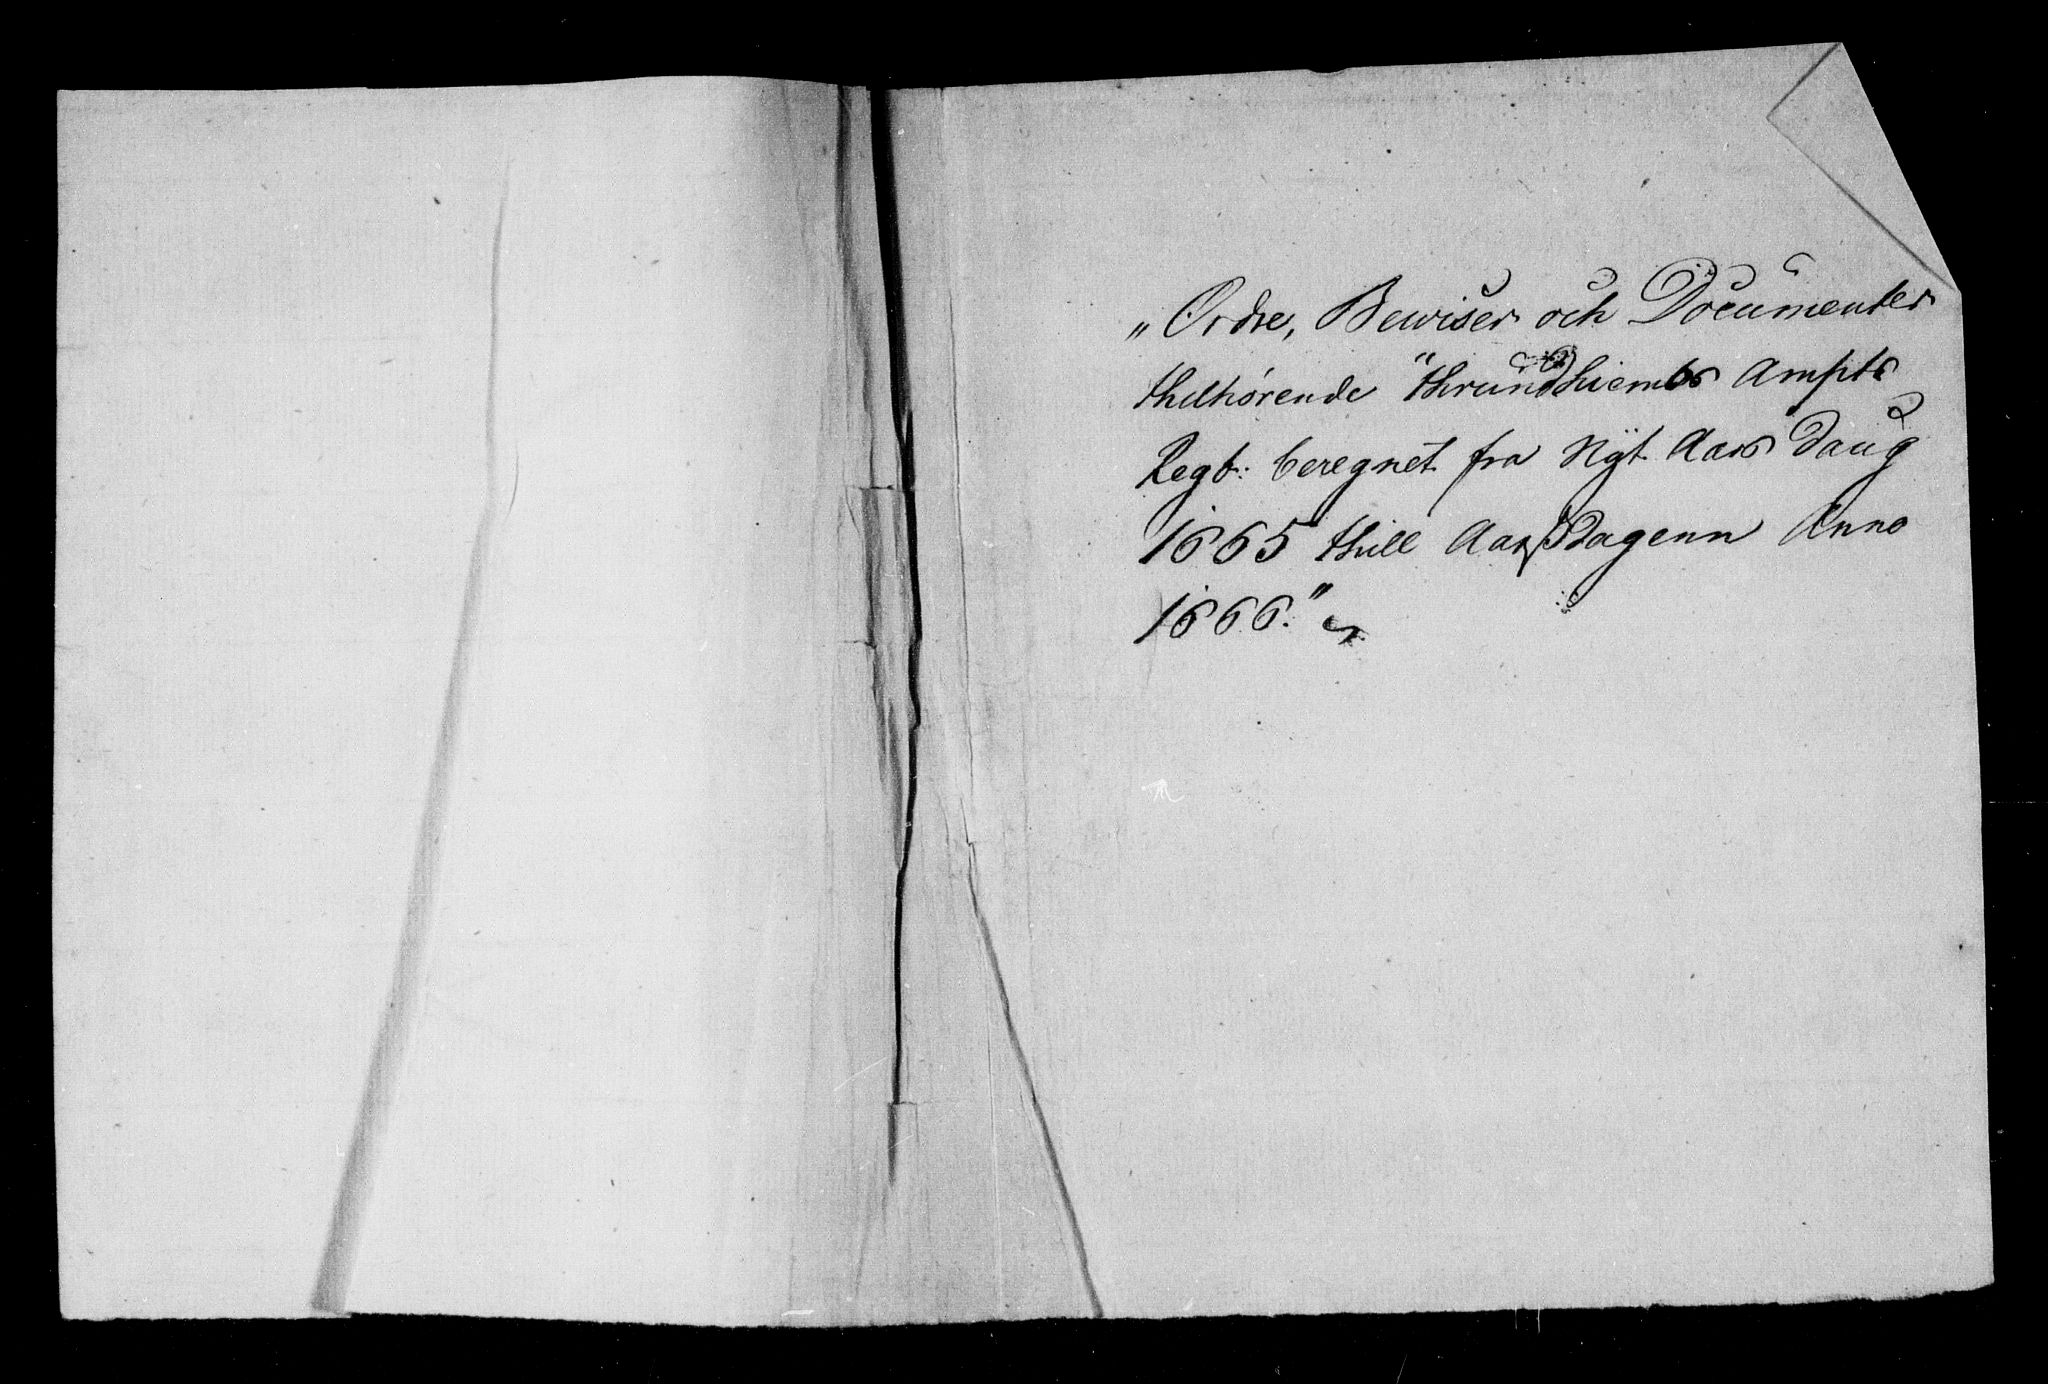 „Ordre, Bewiser och Documenter
thilhørende Thrundhiembs Ampts
Regb: beregnet fra Nyt Aars Daug
1665 thill Aarsdagenn Anno
1666."